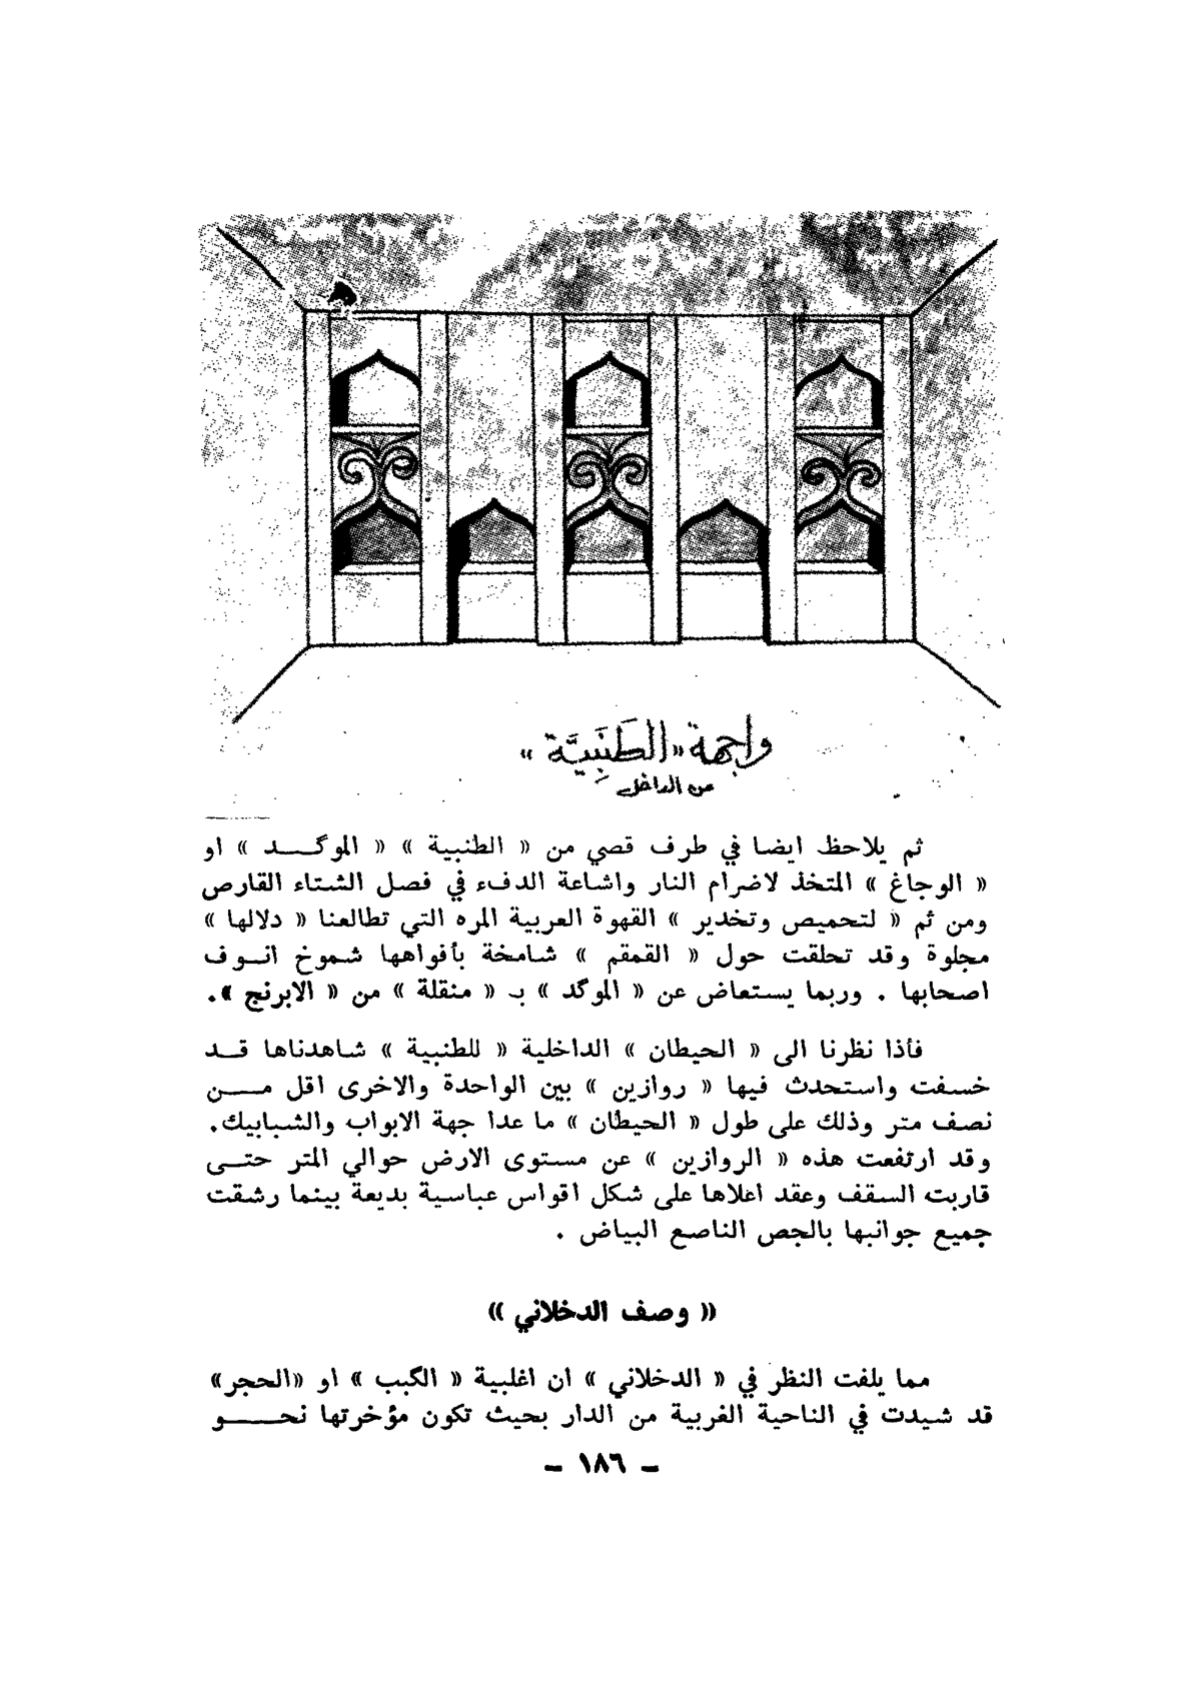 واجهة «الطَنَبِيَّة»
من الداخل
ثم يلاحظ ايضا في طرف قصي من « الطنبية » « الموگـــد » او
« الوجاغ » المتخذ لاضرام النار واشاعة الدفء في فصل الشتاء القارص
ومن ثم « لتحميص وتخدير » القهوة العربية المره التي تطالعنا « دلالها »
مجلوة وقد تحلقت حول « القمقم » شامخة بأفواهها شموخ انـوف
اصحابها . وربما يستعاض عن « الموگد » بـ « منقلة » من « الابرنج ».
فأذا نظرنا الى « الحيطان » الداخلية « للطنبية » شاهدناها قـد
خسفت واستحدث فيها « روازين » بين الواحدة والاخرى اقل مــن
نصف متر وذلك على طول « الحيطان » ما عدا جهة الابواب والشبابيك.
وقد ارتفعت هذه « الروازين » عن مستوى الارض حوالي المتر حتـى
قاربت السقف وعقد اعلاها على شكل اقواس عباسية بديعة بينما رشقت
جميع جوانبها بالجص الناصع البياض .
« وصف الدخلاني »
مما يلفت النظر في « الدخلاني » ان اغلبية « الگبب » او «الحجر»
قد شيدت في الناحية الغربية من الدار بحيث تكون مؤخرتها نحــــو
ـ ١٨٦ ـ